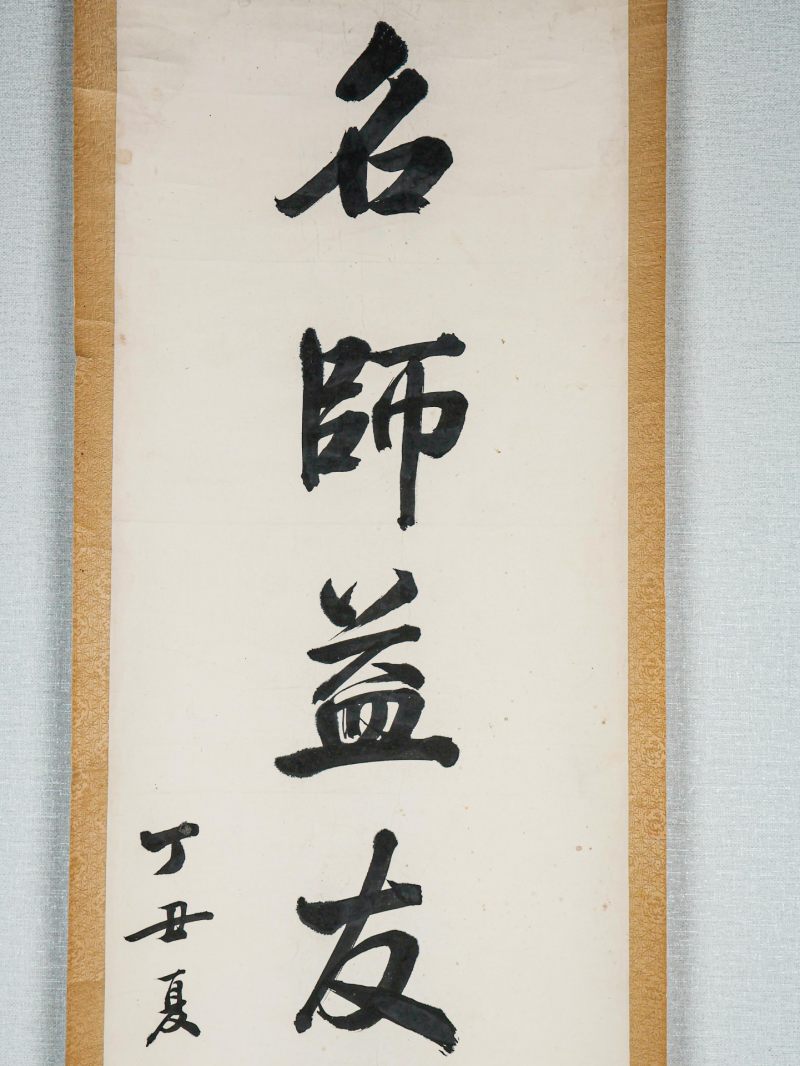 名師益友
丁丑夏